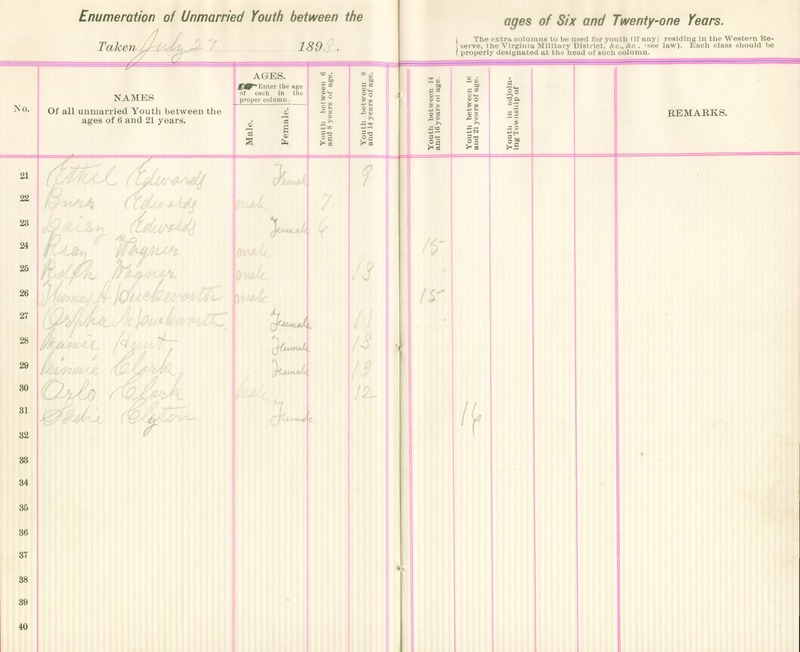 Enumeration of Unmarried Youth between the ages of Six and Twenty-one Years.
Taken July 27 1893.
The extra columns to be used for youth (if any) residing in the Western Re-
serve, the Virginia Military District, &c., &c., (see law). Each class should be
properly designated at the head of such column.
No.
NAMES
Of all unmarried Youth between the
ages of 6 and 21 years.
AGES.
Enter the age
of each in the
proper column.
Male.
Female.
Youth between 6
and 8 years of age.
Youth between 8
and 14 years of age.
Youth between 14
and 16 years of age.
Youth between 16
and 21 years of age.
Youth in adjoin-
ing Township of
REMARKS.
21 Ethel Edwards Female 9
22 Edwards male 7
23 Daisy Edwards Female 6
24 Wagner male 15
25 Ralph Wagner male 13
26 Thomas A Duckworth male 15
27 Orpha M Duckworth Female 11
28 Mamie Hunt Female 13
29 Minnie Clark Female 13
30 Orlo Clark Male 12
31 Sadie Female 16
32
33
34
35
36
37
38
39
40